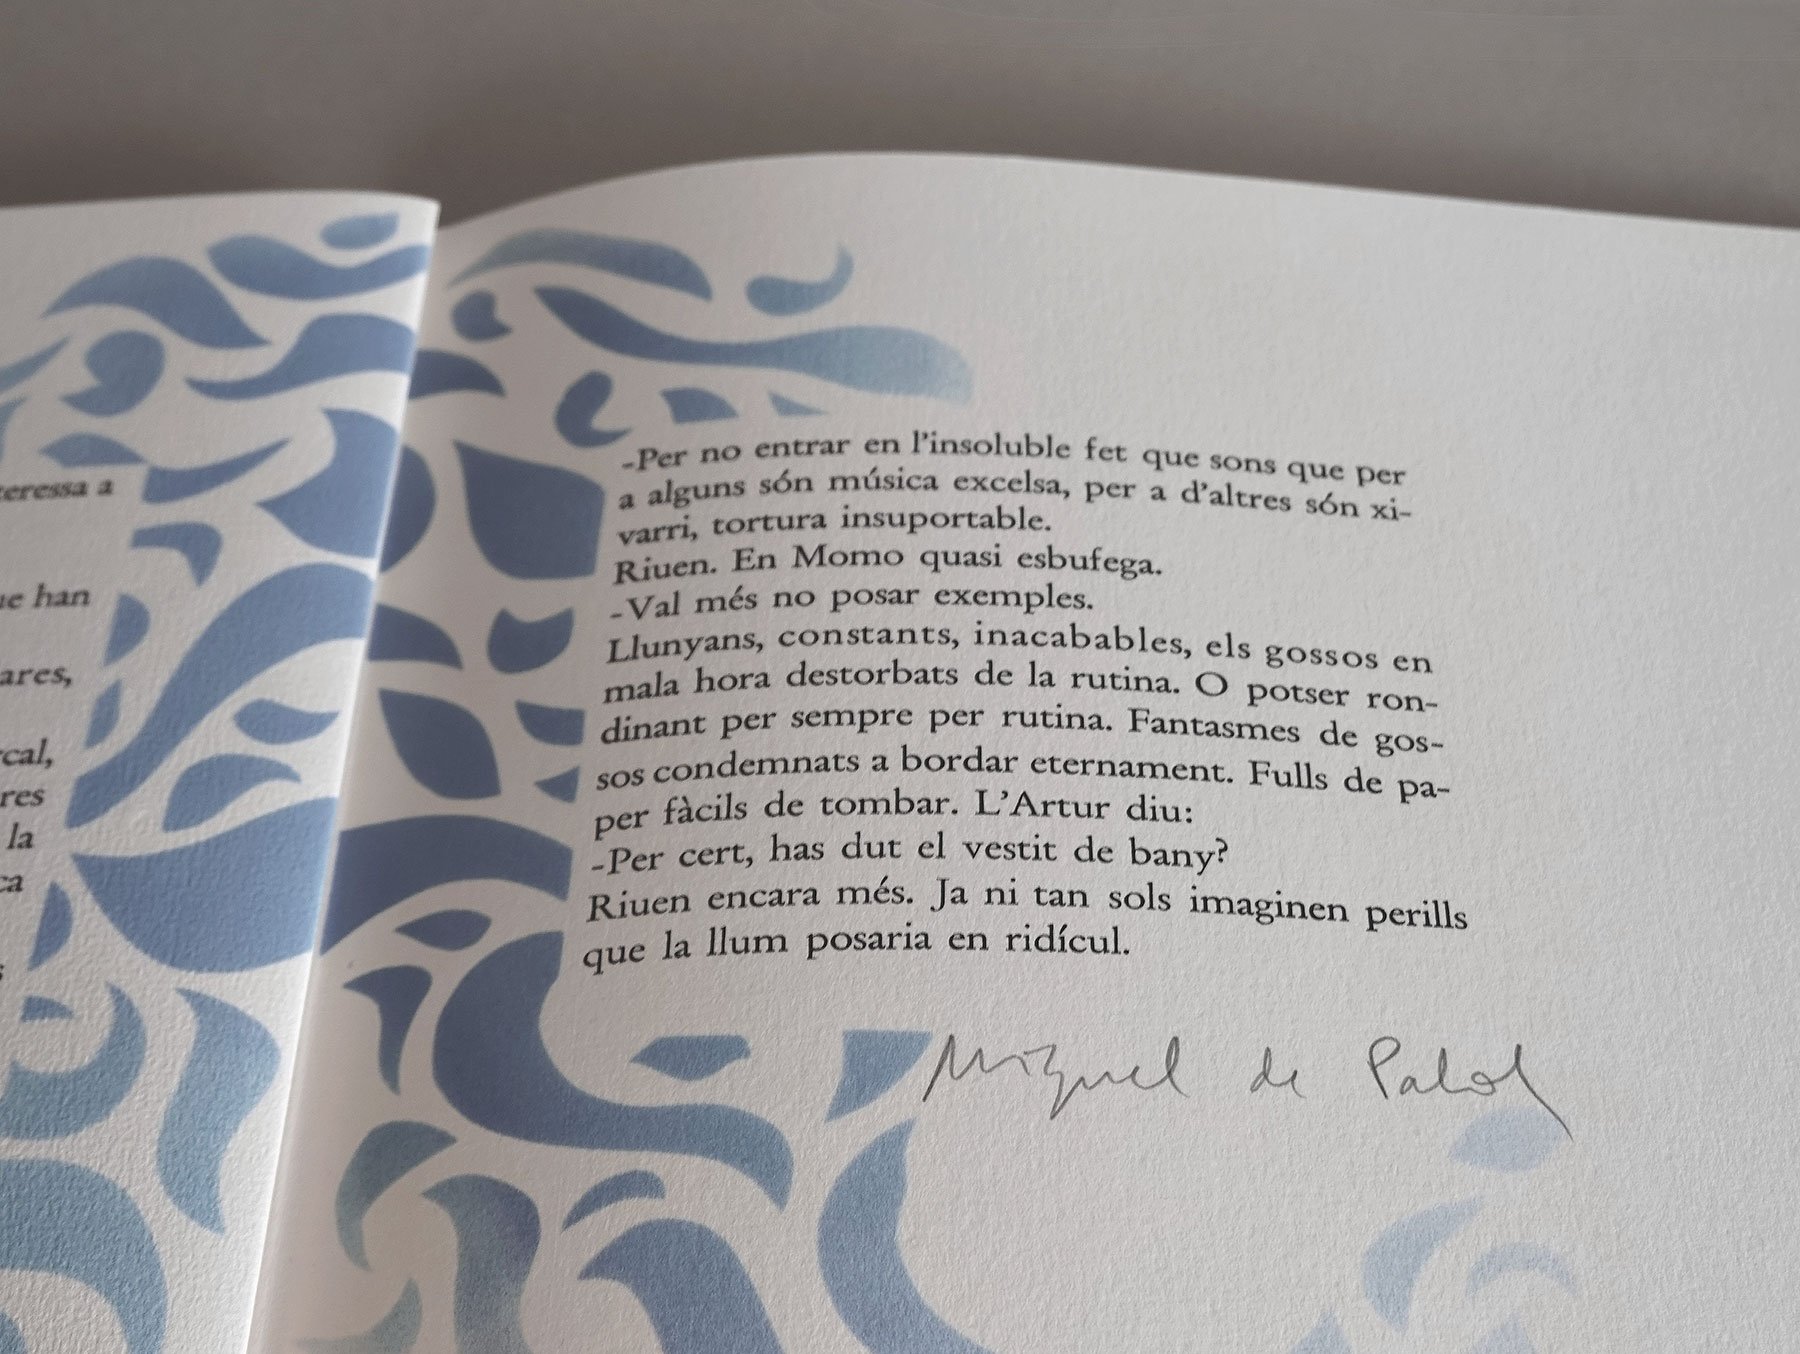 teressa a
ue han
ares,
rcal,
res
la
ca
s
-Per no entrar en l'insoluble fet que sons que per
a alguns són música excelsa, per a d'altres són xi-
varri, tortura insuportable.
Riuen. En Momo quasi esbufega.
-Val més no posar exemples.
Llunyans, constants, inacabables, els gossos en
mala hora destorbats de la rutina. O potser ron-
dinant per sempre per rutina. Fantasmes de gos-
sos condemnats a bordar eternament. Fulls de pa-
per fàcils de tombar. L'Artur diu:
-Per cert, has dut el vestit de bany?
Riuen encara més. Ja ni tan sols imaginen perills
que la llum posaria en ridícul.
Miquel de Palol